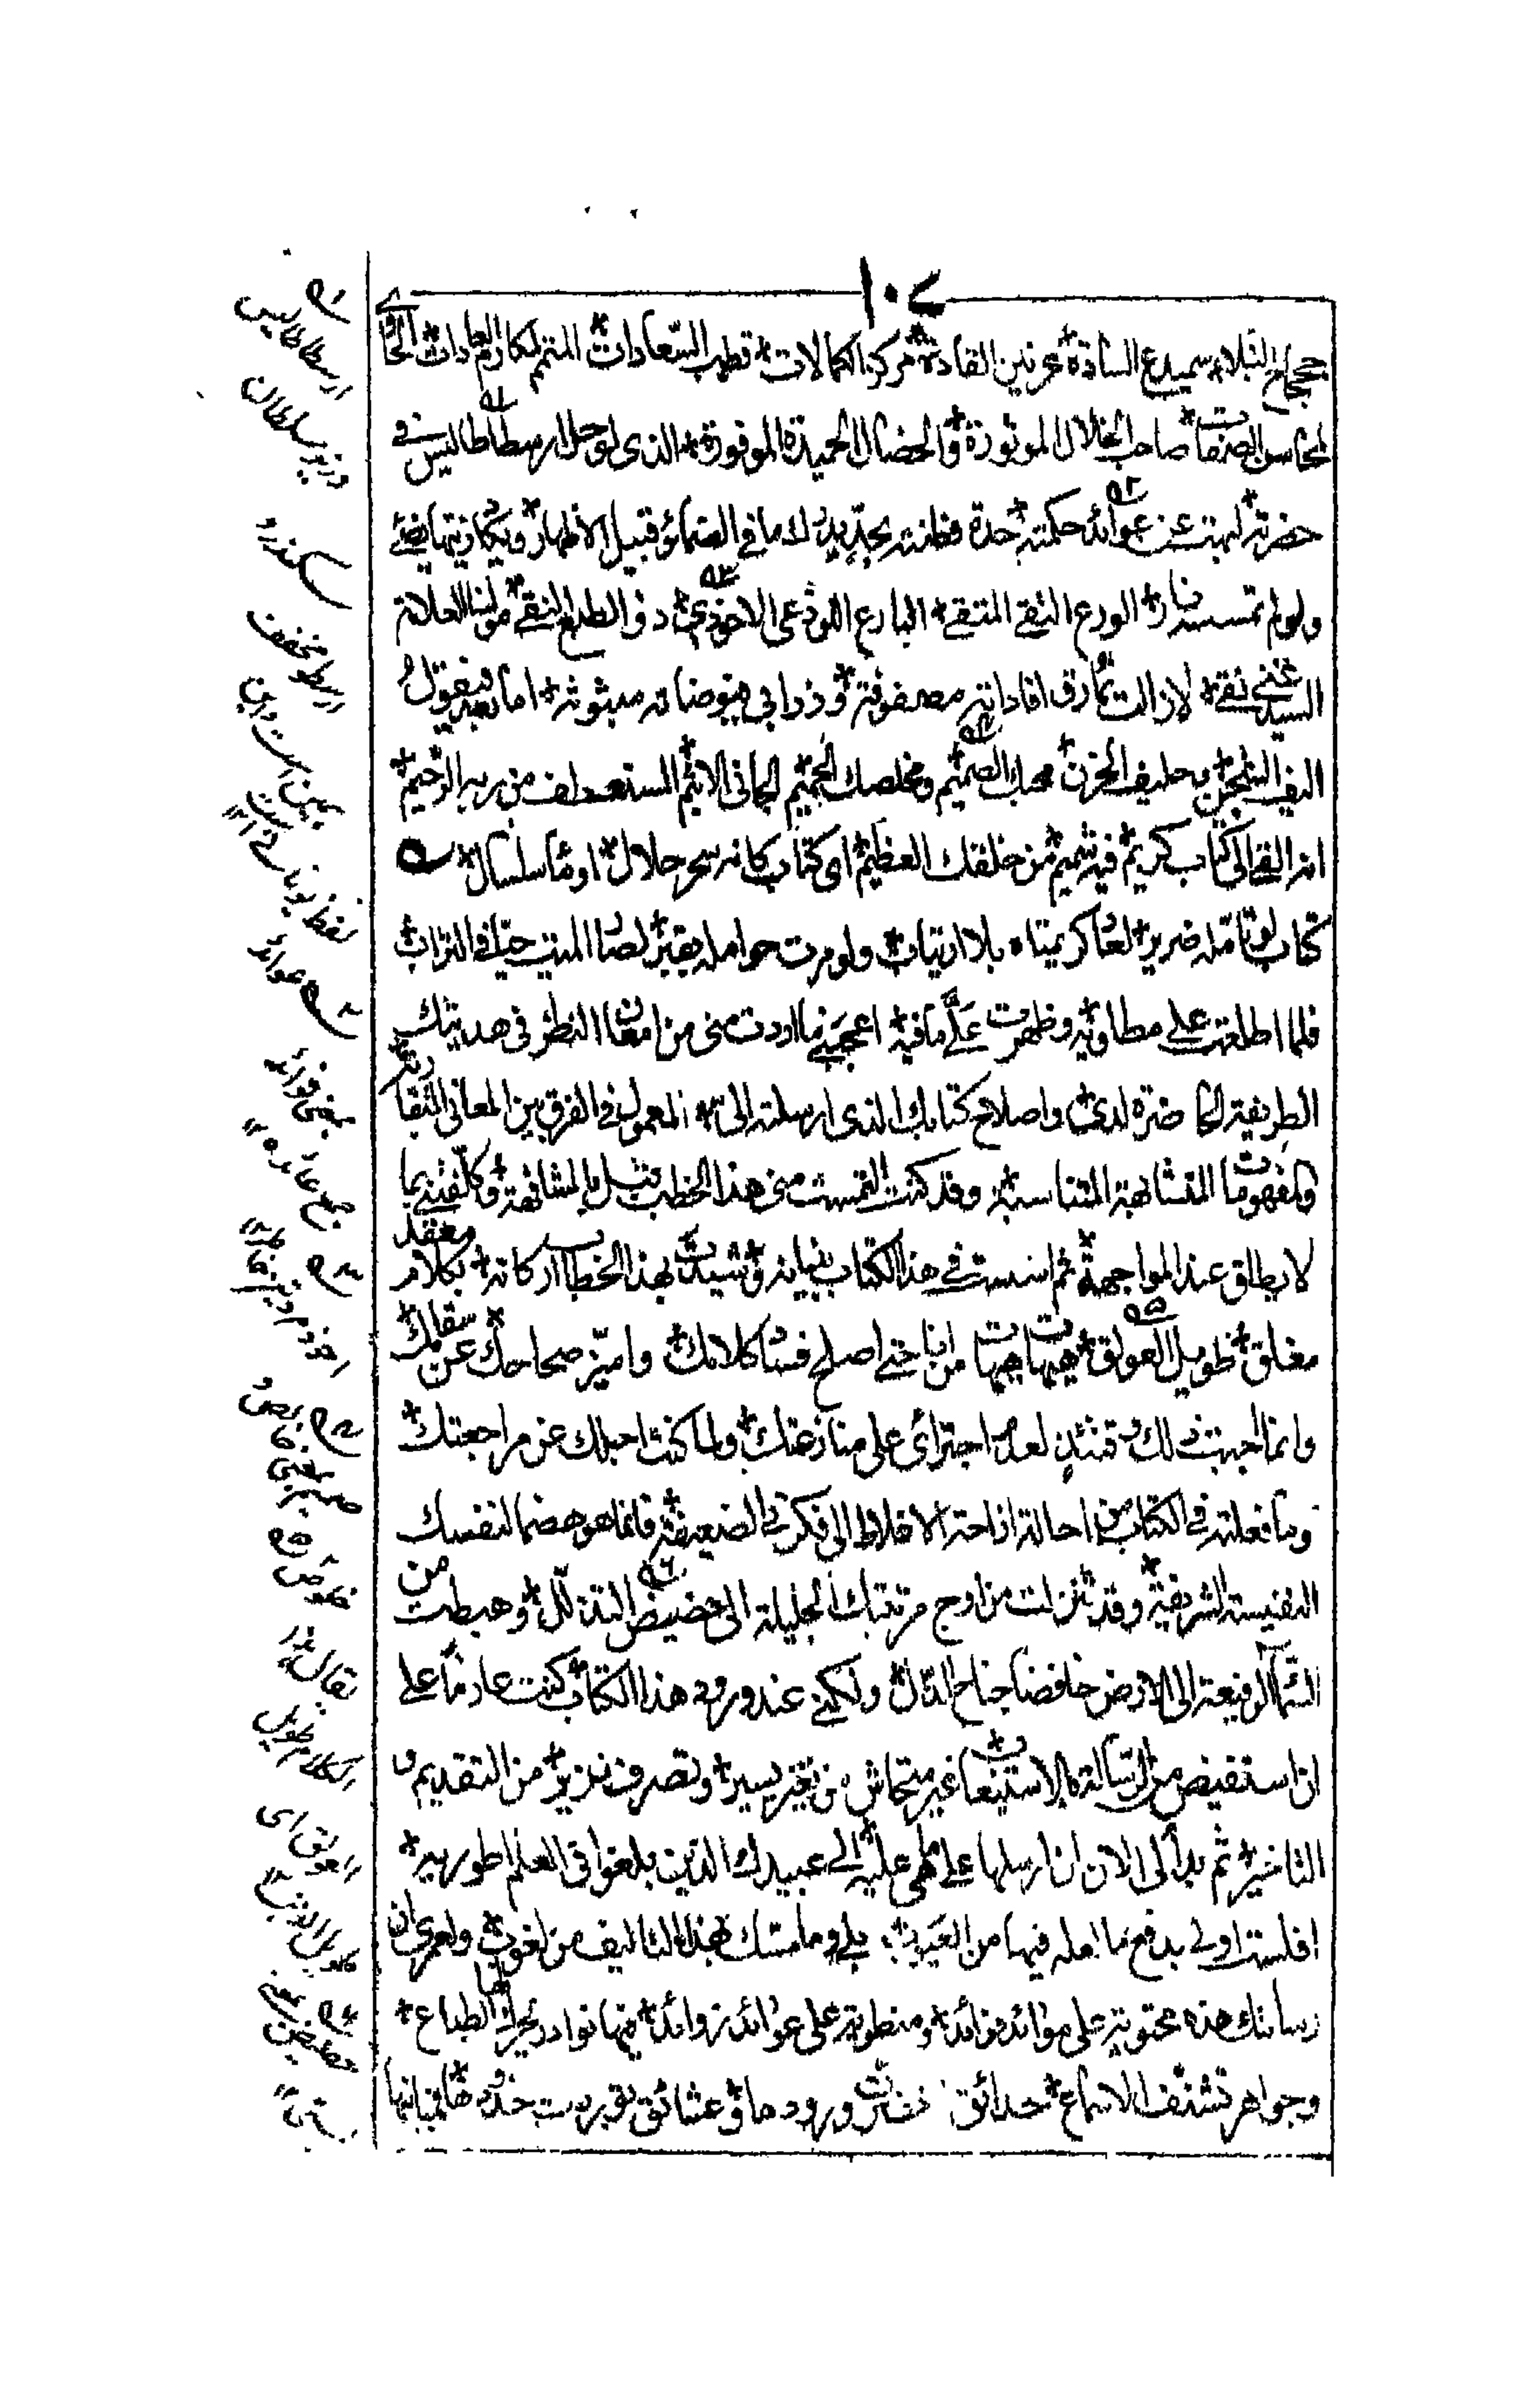 ١٠٧
جحجاح النبلاء سميدع السادة عرنين القادة مركز الكمالات قطب السعادات المتمم لمكارم العادات الحاوي
لمحاسن الصفات صاحب الخلال الموثورة والخصال الحميدة الموفورة الذي لو حل ارسطاطاليس في
حضرته لبهت عن عوائد حكمته حدة فطانته بحديد لك ما في الضمائر قبيل الاظهار ويكاد زيتها يضيئ
ولو لم تمسسه نار الورع التقي المتقي البارع اللوذعي الاحوذي ذو الطبع النقي مولينا العلامة
السيد غني نقي لازالت نمارق افاداته مصفوفة وذرابي فيوضاته مبثوثه اما بعد فيقول
اليف الشجن حليف الحزن محبك الصميم ومخلصك الحميم الجاني الاثيم المستعطف من ربه الرحيم
انه القي الي كتاب كريم فيه شميم من خلقك العظيم اي كتاب كانه سحر حلال او ماء سلسال
كتاب لو تامله ضرير لعاد كريمتاه بلا ارتياب ولو مرت حوامله بقبر لصار الميت حيا في التراب
فلما اطلعت على مطاويه وظهرت علي ما فيه اعجبني ما اردت مني من امعان النظر في هديتك
الطريفة الحاضرة لدي واصلاح كتابك الذي ارسلته الي المعمول في الفرق بين المعاني المتقاربة
والمفهومات المتشابهة المتناسبة وقد كنت التمست مني هذا الخطب قبل بالمشافهة وكلفتني بما
لا يطاق عند المواجهة ثم اسست في هذا الكتاب بنيانه وشيدت بهذا الخطاب اركانه بكلام معقد
مغلق طويل العولق هيهات هيهات من انا حتى اصلح فساد كلامك واميز صحاحك عن سقامك
وانما اجبت لك وقتئذ لعدم اجترائ على منازعتك ولما كنت اجلك عن مراجعتك
وما فعلته في الكتاب من احالة ازاحة الاغلاط الى فكرتي الضعيفة فانما هو هضما لنفسك
النفيسة الشريفة وقد تنزلت من اوج مرتبتك الجليلة الى حضيض التذلل وهبطت من
السماء الرفيعة الى الارض خافضا جناح الذل ولكني عند ورود هذا الكتاب كنت عازما على
ان استفيض من الرسالة بالاستيعاب غير متحاش عن تغير يسير وتصرف نزير من التقديم و
التاخير ثم بدا لي الان ان ارسلها على ما هي عليه الى عبيدك الذين بلغوا في العلم اطوريه
افلست اولى بدفع ما لعله فيها من العيوب بلى وما مسك بهذا التاليف من لغوب ولعمري ان
رسالتك هذه محتوية على موائد فوائد ومنطوية على عوائد زوائد فيها نوادر تحرك بها الطباع
وجواهر تشنف الاسماع حدائق ورود ها وعشائق توردت خدودها
١٥
ارسطاطاليس
وزير سلطان
سكندر
ارسطو مخفف
همين است واين
لفظ يونانى است ١٢
٢٥ عوائد
بمعنى فوائد
جمع عائده ١٢
٣٥
٤٥
صميم بمعنى خالص
٥٥
يقال
الكلام طويل
العولق اى
طويل الذنب ١٢
٦٥
حضيض بمعنى
پستى ١٢